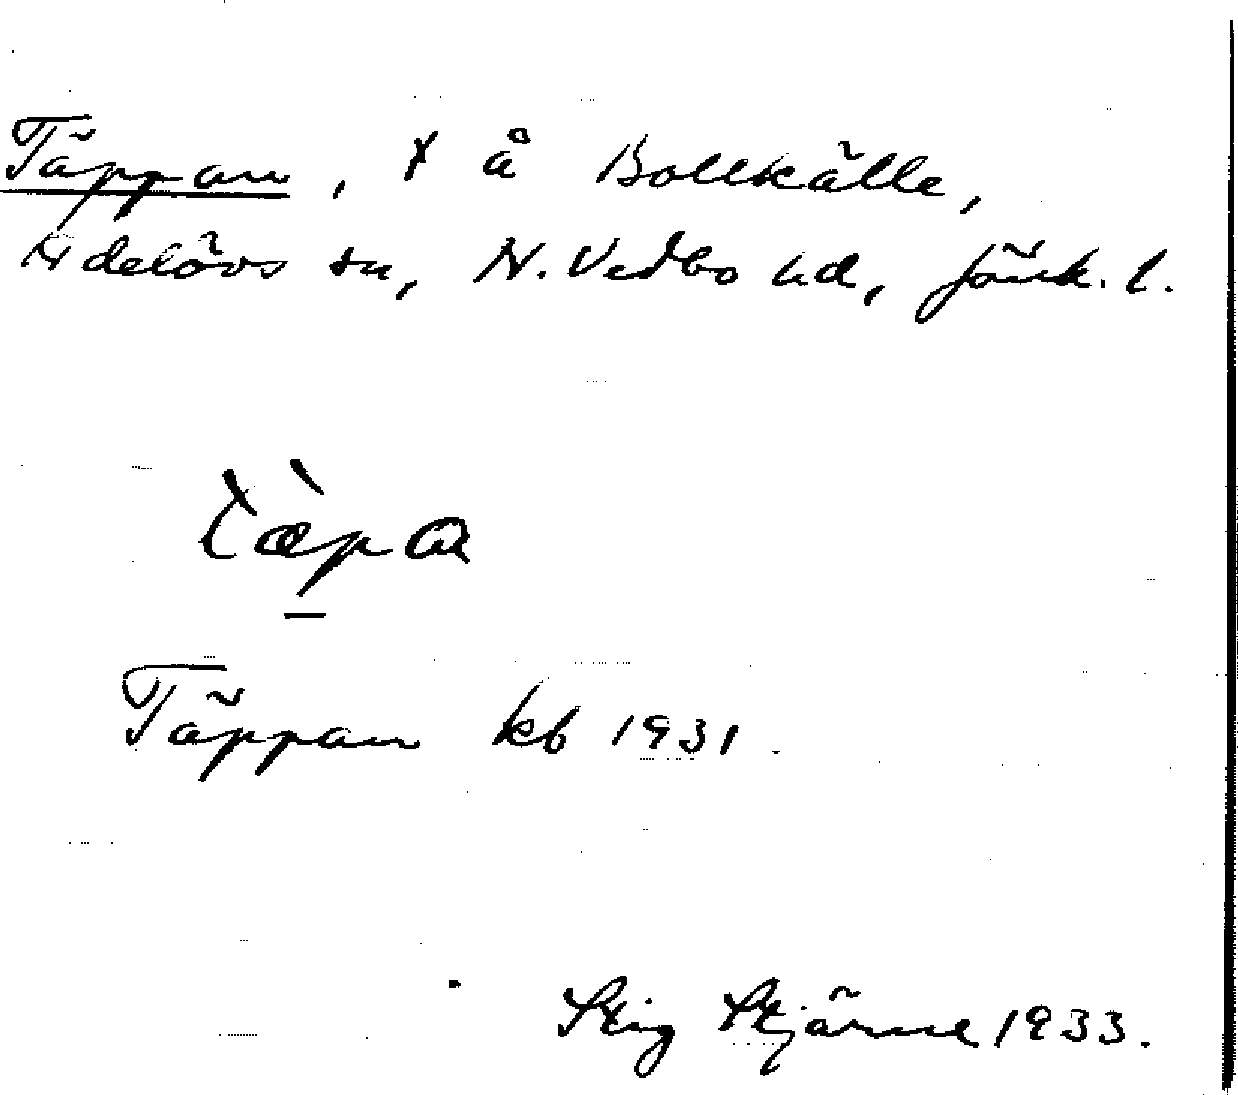 Täppan, x å Bollkälle,
Adelövs sn, N. Vedbo hd, Jönk. l.
tæ̀pa
Täppan kb 1931.
Stig Stjärne 1933.